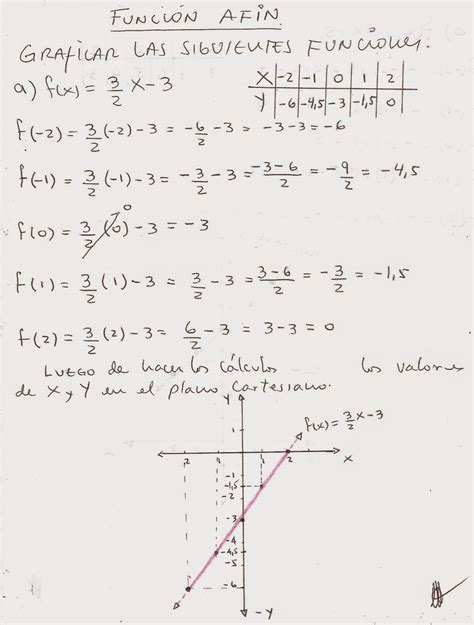 FUNCIÓN AFIN.
GRAFICAR LAS SIGUIENTES FUNCIONES.
a) f(x) = 3/2 x - 3
X | -2 | -1 | 0 | 1 | 2
Y | -6 | -4,5 | -3 | -1,5 | 0
f(-2) = 3/2 (-2) - 3 = -6/2 - 3 = -3 - 3 = -6
f(-1) = 3/2 (-1) - 3 = -3/2 - 3 = -3-6/2 = -9/2 = -4,5
f(0) = 3/2 (0) 0 - 3 = -3
f(1) = 3/2 (1) - 3 = 3/2 - 3 = 3-6/2 = -3/2 = -1,5
f(2) = 3/2 (2) - 3 = 6/2 - 3 = 3 - 3 = 0
LUEGO de hacer los cálculos los valores
de X y Y en el plano cartesiano.
Y
f(x) = 3/2 x - 3
1
1 2 X
-1
-1,5
-2
-3
-4
-4,5
-5
-6
-Y